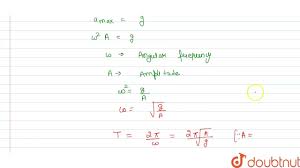 a max = g
ω² A = g
ω → Angular frequency
A → Amplitude
ω² = g/A
ω = √(g/A)
T = 2π/ω = 2π√(A/g) [∵A =
doubtnut